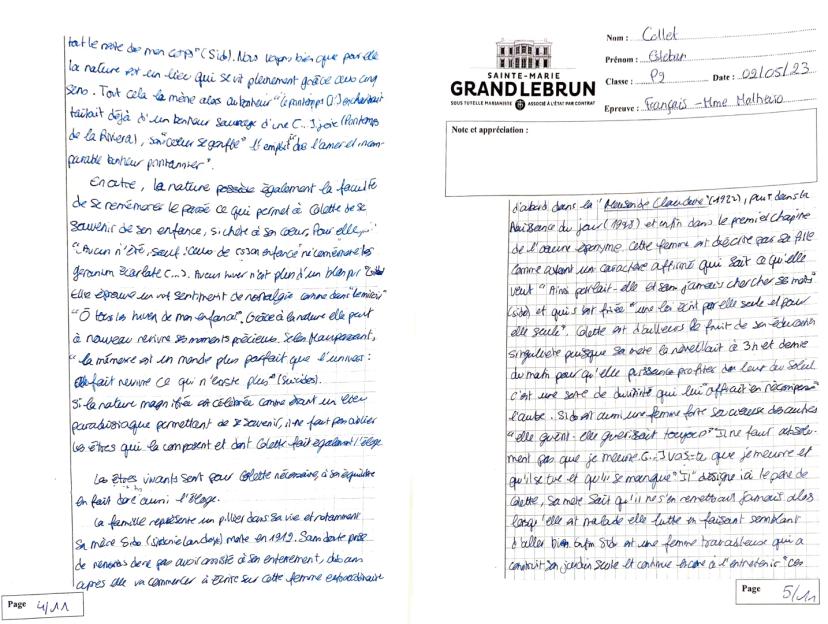 tout le reste de mon corps" (Sido). Nous voyons bien que pour elle
la nature est un lieu qui se vit pleinement grâce aux cinq
sens. Tout cela la mène alors au bonheur
faisait déjà d'un bonheur sauvage d'une (...) joie (Printemps
de la Riviera), son "cœur se gonfle" "l'emplit" de l'amer et incom-
parable bonheur printannier".
En outre, la nature possède également la faculté
de se remémorer le passé ce qui permet à Colette de se
souvenir de son enfance, si chère à son cœur. Pour elle,
"Aucun n'été, sauf ceux de son enfance ne commémore les
geranium écarlate (...). Aucun hiver n'est plus d'un blanc pur"
Elle éprouve un vrai sentiment de nostalgie comme dans "Le miroir"
"Ô tous les hivers de mon enfance". Grâce à la nature elle peut
à nouveau revivre ses moments précieux. Selon Maupassant,
"la mémoire est un monde plus parfait que l'univers :
elle fait revivre ce qui n'existe plus" (Suicides).
Si la nature magnifiée est célébrée comme étant un lieu
paradisiaque permettant de se souvenir, il ne faut pas oublier
les êtres qui la composent et dont Colette fait également l'éloge.
Les êtres vivants sont pour Colette nécessaire, à son équilibre
en fait donc aussi l'éloge.
La famille représente un pilier dans sa vie et notamment
sa mère Sido (sidonie landoy) morte en 1912. Sans doute prise
de remords de ne pas avoir assisté à son enterrement, dix ans
après elle va commencer à écrire sur cette femme extraordinaire
Page 4/11
SAINTE-MARIE
GRAND LEBRUN
SOUS TUTELLE MARIANISTE ASSOCIÉ À L'ÉTAT PAR CONTRAT
Nom : Collet
Prénom :
Classe : P9 Date : 09/05/23
Epreuve : Français - Mme Malheiro
Note et appréciation :
d'abord dans la "Maison de Claudine" (1922), puis dans la
Naissance du jour (1928) et enfin dans le premier chapitre
de l'œuvre éponyme. Cette femme est décrite par sa fille
comme ayant un caractère affirmé qui sait ce qu'elle
veut "Ainsi parlait-elle et sans jamais chercher ses mots"
(sido) et qui s'est fixée "une loi écrit par elle seule et pour
elle seule". Colette est d'ailleurs le fruit de son éducation
singulière puisque sa mère la réveillait à 3h et demie
du matin pour qu'elle puisse profiter de leur du soleil
c'est une sorte de divinité qui lui "offrait en récompense
l'aube. Sido est aussi une femme forte soucieuse des autres
"elle guérit : elle guérissait toujours" "Il ne faut absolu-
ment pas que je meure (...) vas-tu que je meure et
qu'il se tue et qu'il se manque" "Il" désigne ici le père de
Colette, sa mère sait qu'il ne s'en remettrait jamais alors
lorsqu'elle est malade elle lutte en faisant semblant
d'aller bien. Enfin Sido est une femme travailleuse qui a
construit son jardin seule et continue encore à l'entretenir "ces
Page 5/11